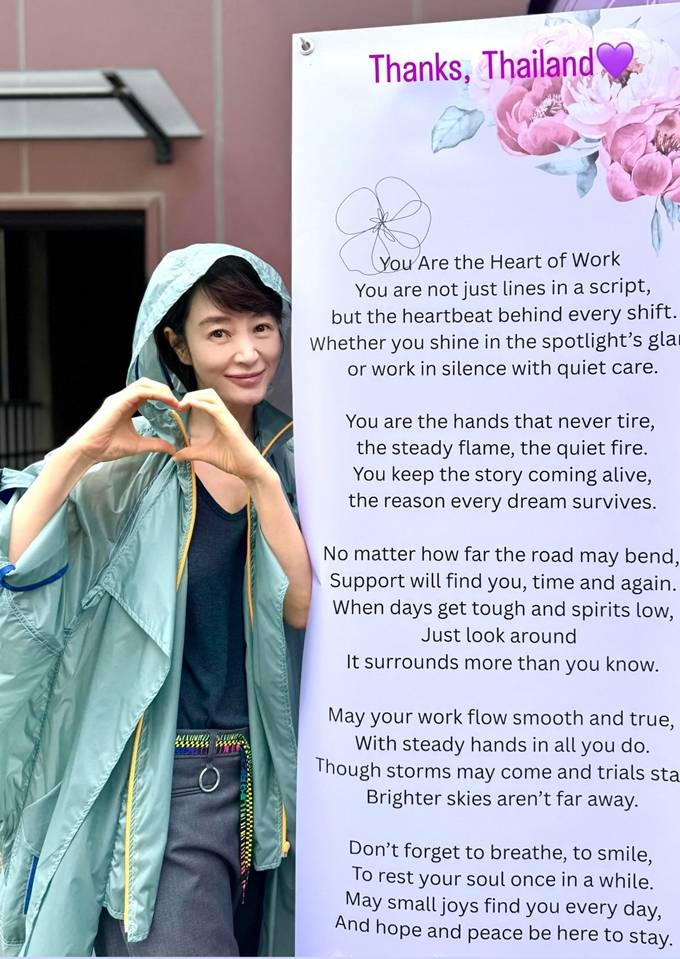 Thanks, Thailand💜
You Are the Heart of Work
You are not just lines in a script,
but the heartbeat behind every shift.
Whether you shine in the spotlight's
or work in silence with quiet care.
You are the hands that never tire,
the steady flame, the quiet fire.
You keep the story coming alive,
the reason every dream survives.
No matter how far the road may bend,
Support will find you, time and again.
When days get tough and spirits low,
Just look around
It surrounds more than you know.
May your work flow smooth and true,
With steady hands in all you do.
Though storms may come and trials
Brighter skies aren't far away.
Don't forget to breathe, to smile,
To rest your soul once in a while.
May small joys find you every day,
And hope and peace be here to stay.